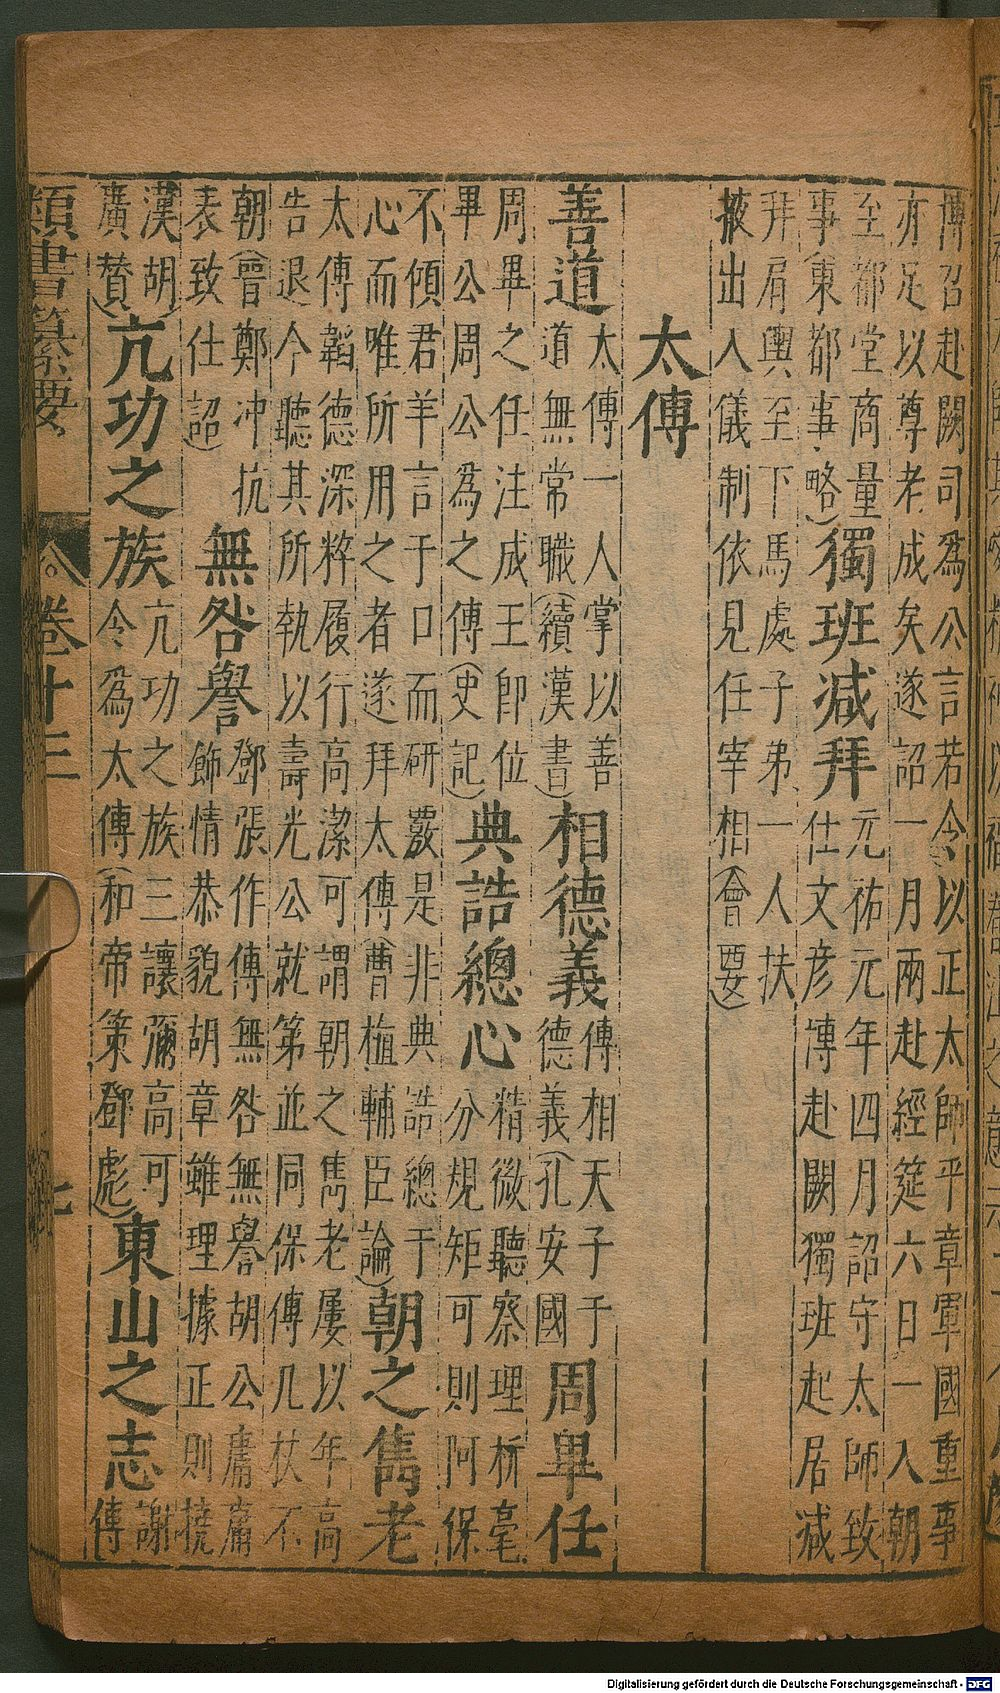 博召赴闕司為公言若令以正太師平章軍國重事
亦足以尊老成矣遂詔一月兩赴經筵六日一入朝
至都堂商量
事(東都事略)
獨班减拜
元祐元年四月詔守太師致
仕文彦博赴闕獨班起居减
拜肩輿至下馬處子弟一人扶
掖出入儀制依見任宰相(會要)
太傅
善道
太傅一人掌以善
道無常職(續漢書)
相德義
傅相天子于
德義(孔安國
周畢任
周畢之任注成王卽位
畢公周公為之傅(史記)
典誥總心
精微聽察理析毫
分規矩可則阿保
不傾君羊言于口而研覈是非典誥總于
心而唯所用之者遂拜太傅(曹植輔臣論)
朝之雋老
太傅韜德深粹履行高潔可謂朝之雋老屢以年高
告退今聽其所執以壽光公就第並同保傅几杖不
朝(曾鄭冲抗
表致仕詔)
無咎譽
鄧張作傅無咎無譽胡公庸庸
飾情恭貌胡章雖理據正則撓
漢胡
廣賛)
亢功之族
亢功之族三讓彌高可
令為太傅(和帝策鄧彪)
東山之志
謝
傅
類書纂要
卷十三
七
Digitalisierung gefördert durch die Deutsche Forschungsgemeinschaft - DFG